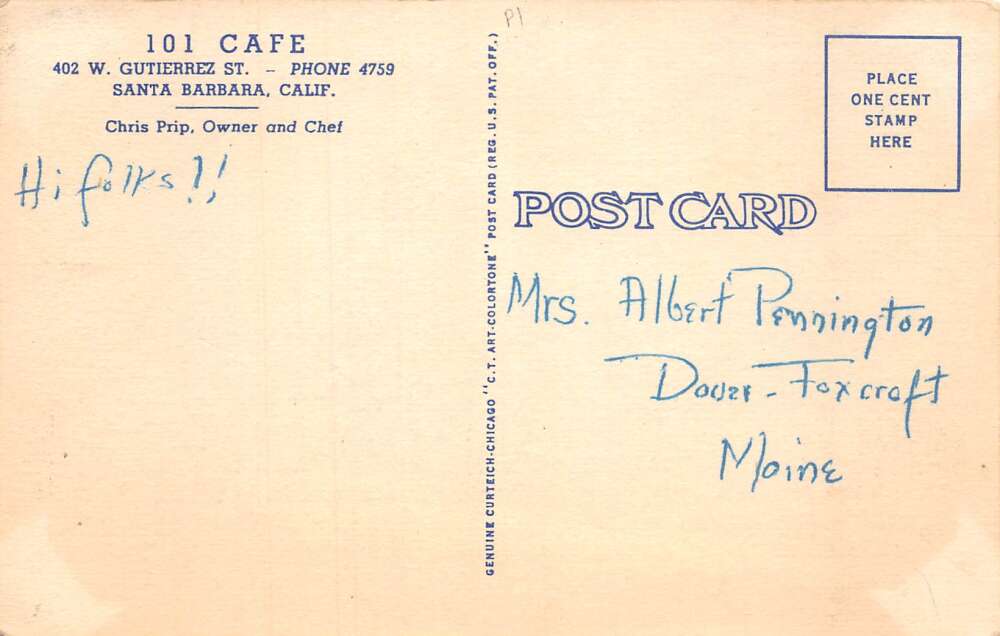 101 CAFE
402 W. GUTIERREZ ST. – PHONE 4759
SANTA BARBARA, CALIF.
Chris Prip, Owner and Chef
Hi folks!!
P1
GENUINE CURTEICH-CHICAGO "C.T. ART-COLORTONE" POST CARD (REG. U.S. PAT. OFF.)
PLACE
ONE CENT
STAMP
HERE
POST CARD
Mrs. Albert Pennington
Dover-Foxcroft
Maine